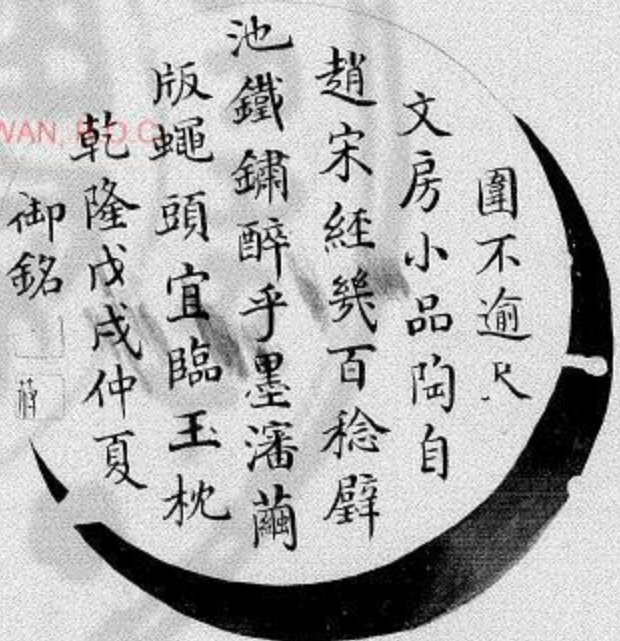 圍不逾尺
文房小品陶自
趙宋經幾百稔壁
池鐵鏽醉乎墨瀋繭
版蠅頭宜臨玉枕
乾隆戊戌仲夏
御銘
WAN, R.O.C